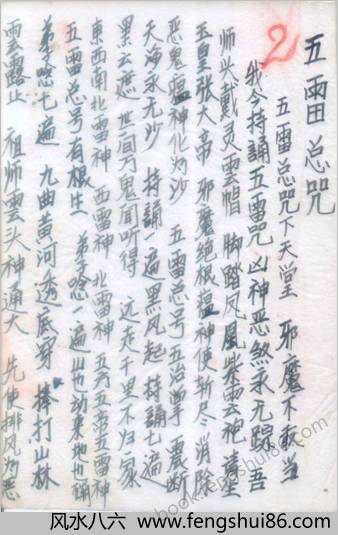 五雷总咒
2
五雷总咒下天堂 邪魔不敢当
我今持誦五雷咒 凶神恶煞永无踪 吾
师头戴灵雲帽 脚踏凤凰紫雲袍 請出
玉皇张大帝 邪魔绝根瘟神使斩尽消除
恶鬼瘟神化为沙 五雷总号五治掌 震断
天海永无沙 持誦一遍黑风起 持誦七遍
黑云遮 世间万鬼闻听得 远走千里不归家
東西南北雷神 西雷神 北雷神 五方五帝五雷神
五雷总号有根生 弟子唸一遍山也动来地也
弟子唸七遍 九曲黄河透底穿 捧打山林
雲露止 祖师雲头神通大 先使排风为恶
book.fengshui86.com
风水八六 www.fengshui86.com